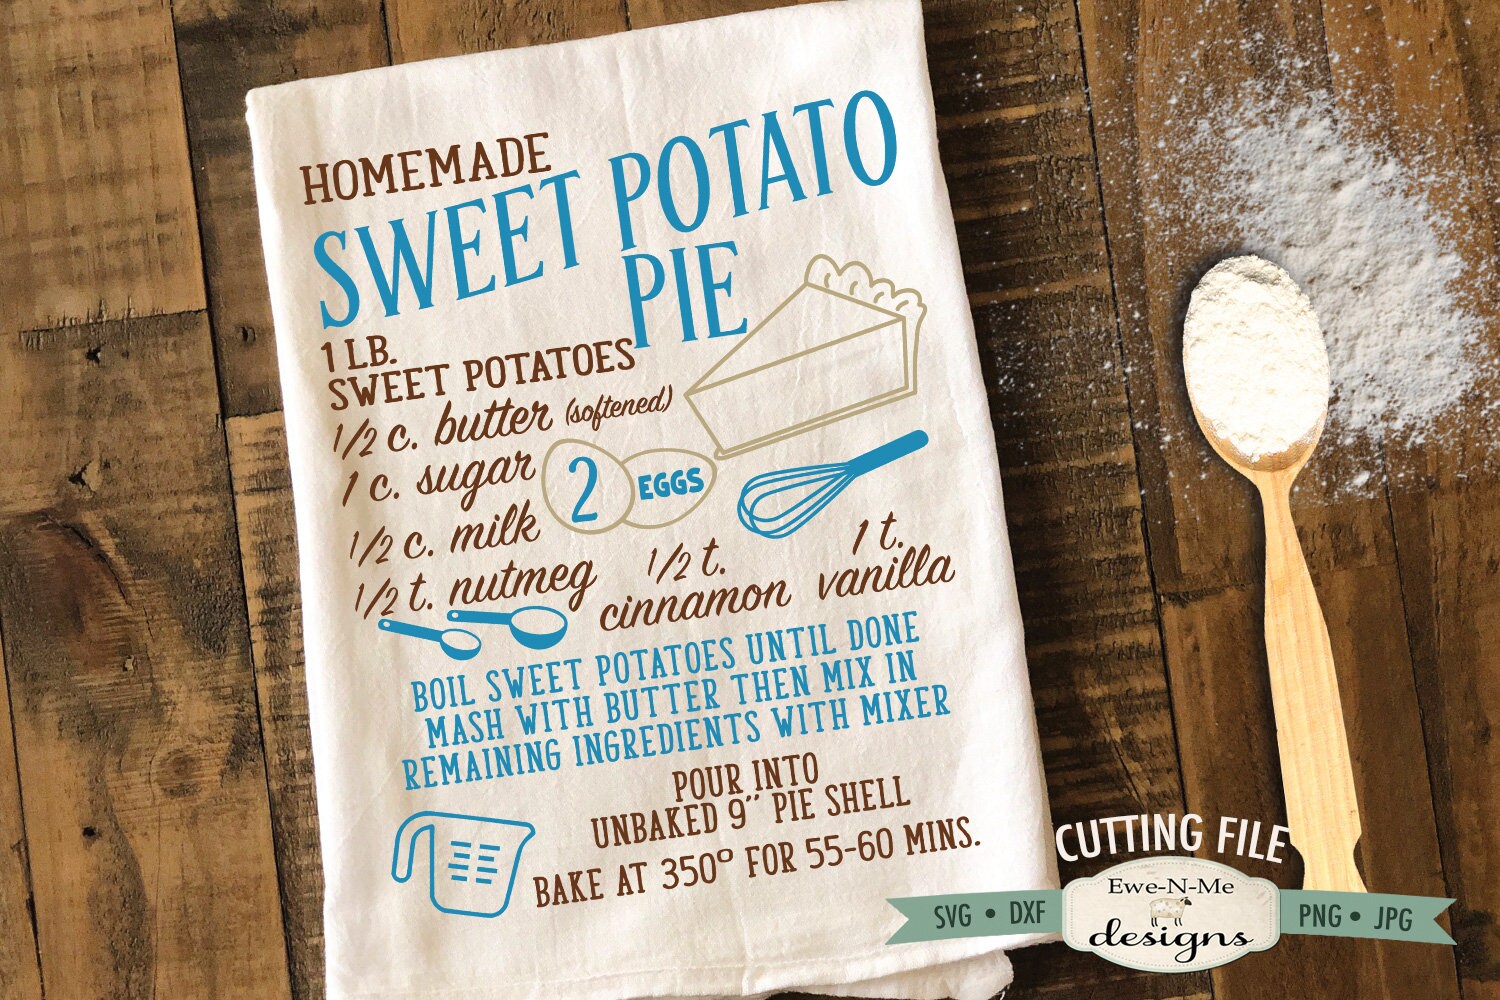 HOMEMADE
SWEET POTATO
PIE
1 LB.
SWEET POTATOES
1/2 c. butter (softened)
1 c. sugar
2 EGGS
1/2 c. milk
1/2 t. nutmeg
1/2 t.
cinnamon
1 t.
vanilla
BOIL SWEET POTATOES UNTIL DONE
MASH WITH BUTTER THEN MIX IN
REMAINING INGREDIENTS WITH MIXER
POUR INTO
UNBAKED 9" PIE SHELL
BAKE AT 350° FOR 55-60 MINS.
CUTTING FILE
SVG • DXF
Ewe-N-Me
designs
PNG • JPG